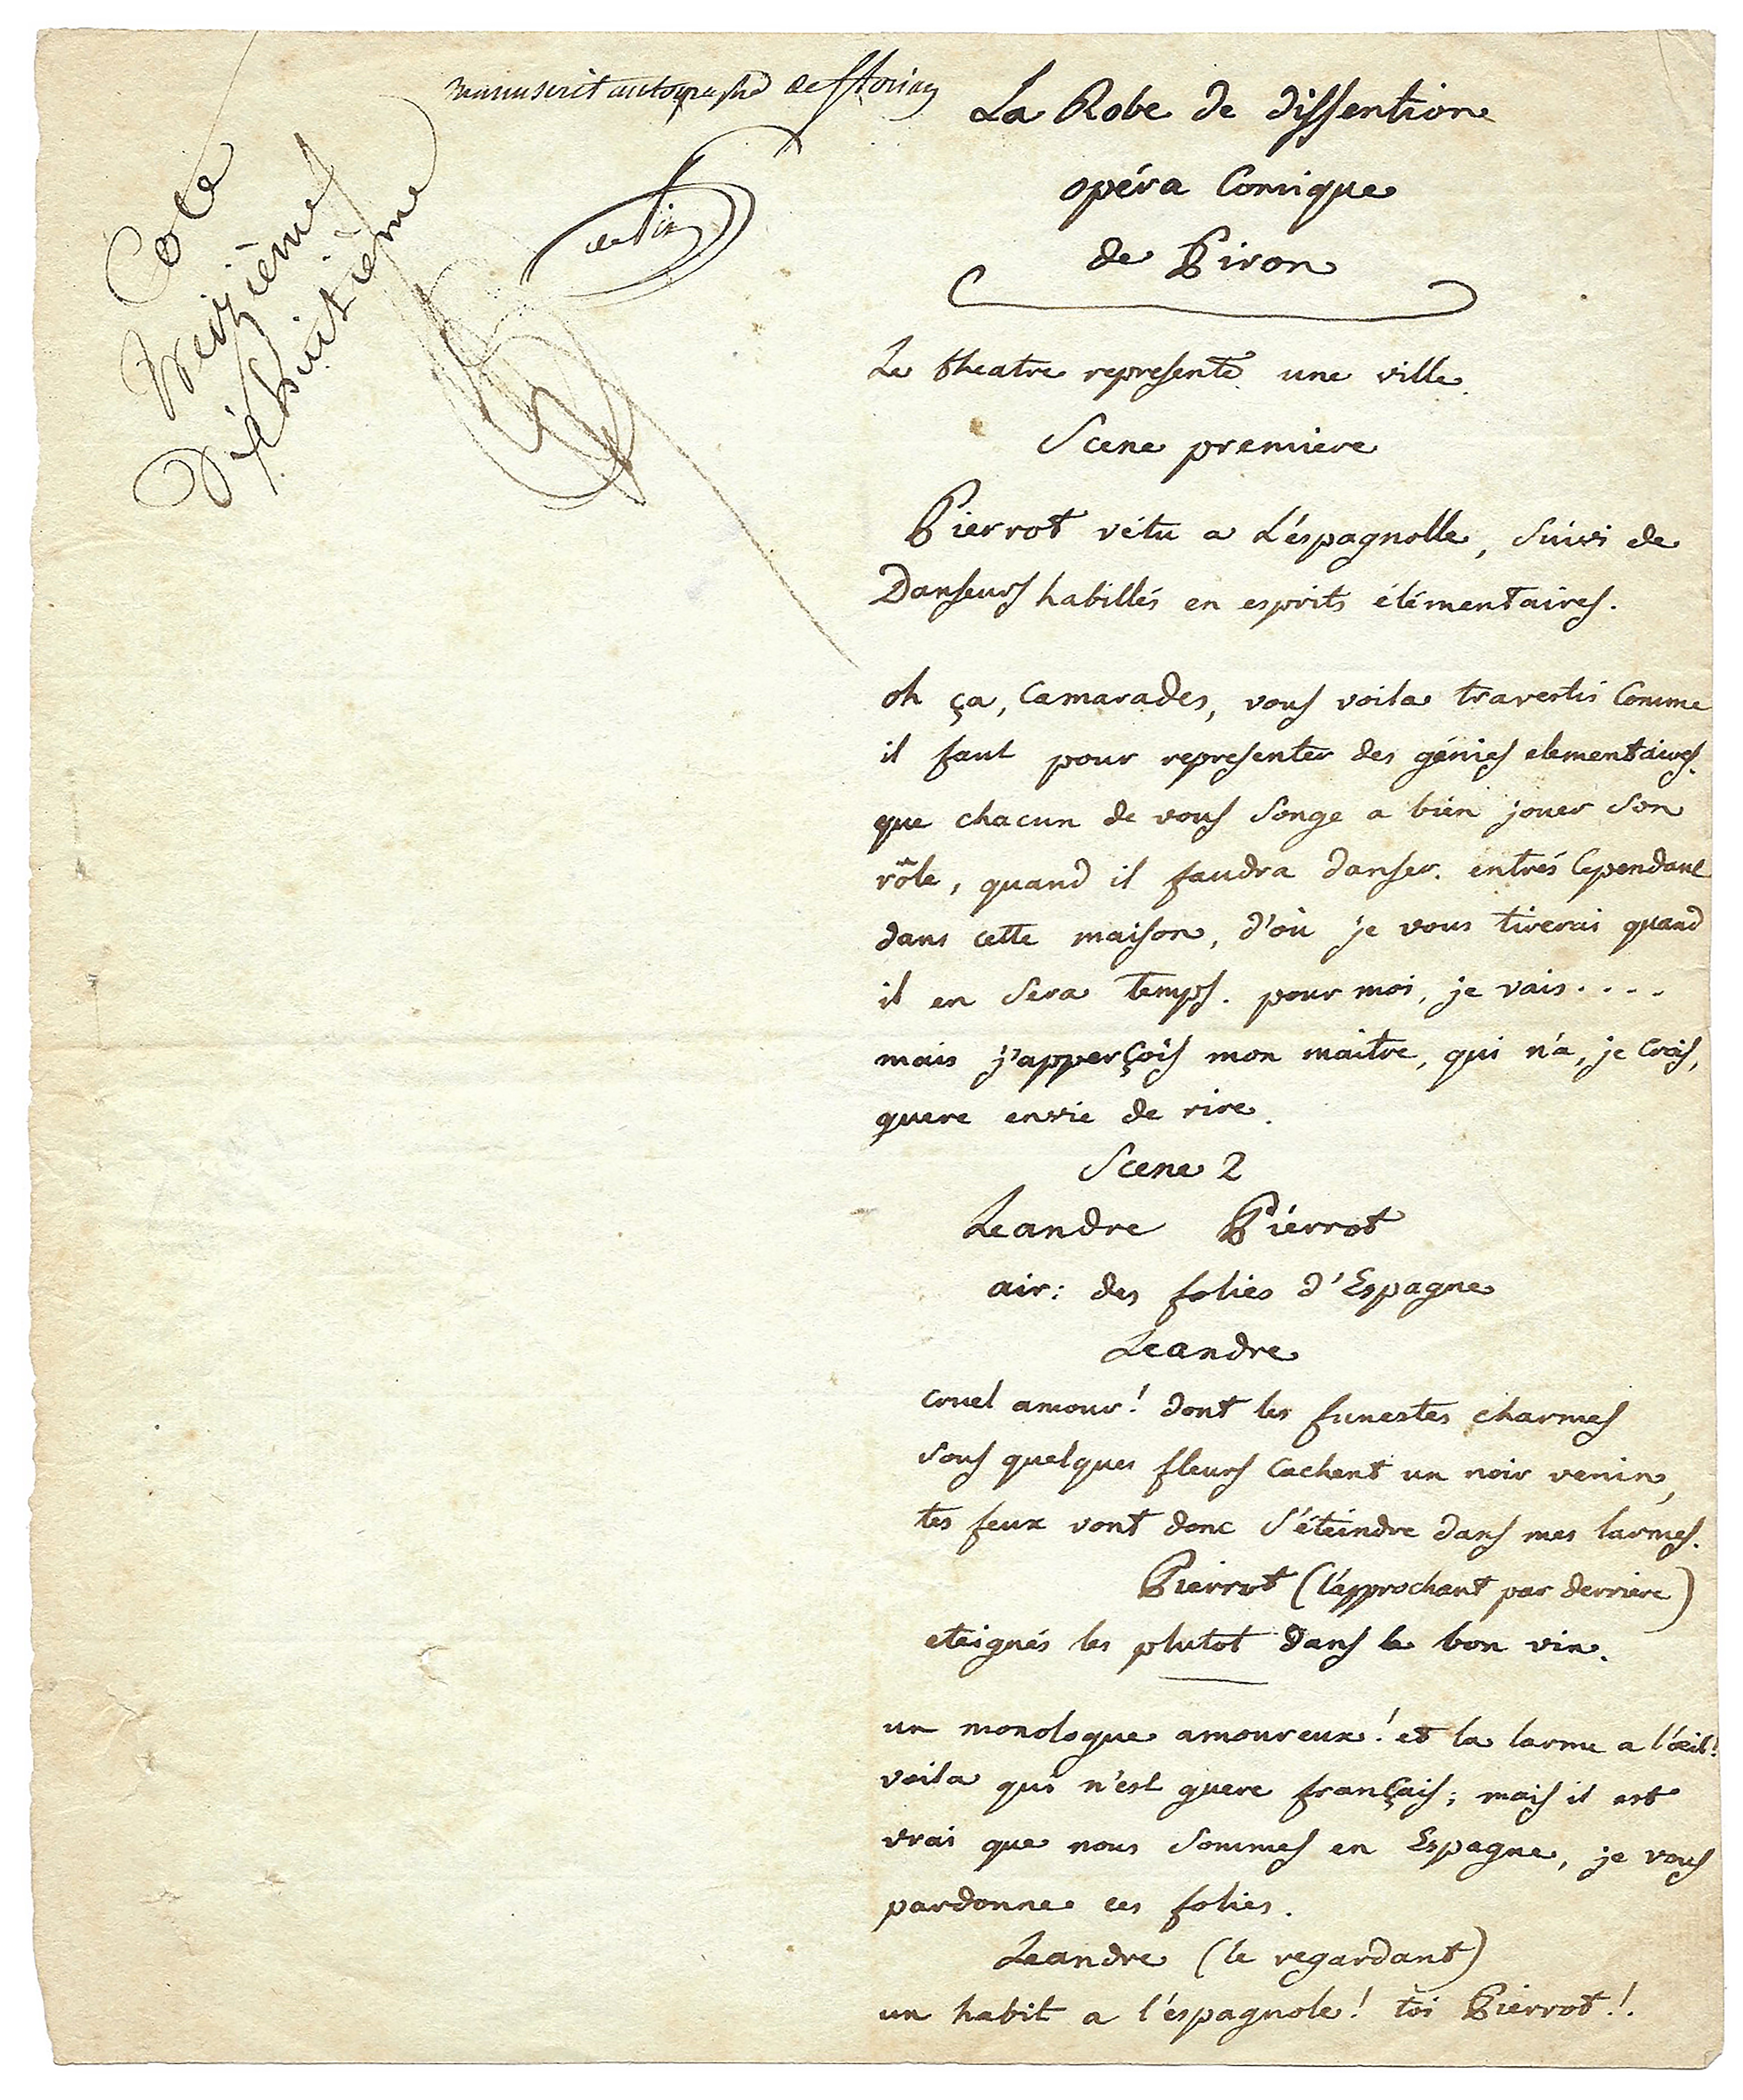 manuscrit autographe de florian
Cote
treizième
dixhuitième
La Robe de dissention
opéra Comique
de Piron
Le theatre represente une ville.
Scene premiere
Pierrot vétu a L'éspagnolle, Suivi de
Danseurs habillés en esprits élémentaires.
oh ça, Camarades, vous voila travestis Comme
il faut pour representer des génies elementaires.
que chacun de vous Songe a bien jouer Son
rôle, quand il faudra danser. entrés Cependant
dans cette maison, d'où je vous tirerai quand
il en Sera temps. pour moi, je vais....
mais j'apperçois mon maitre, qui n'a, je Crois,
guere envie de rire.
Scene 2
Leandre Pierrot
air: des folies d'Espagne
Leandre
Cruel amour! dont les funestes charmes
Sous quelques fleurs Cachent un noir venin,
tes feux vont donc S'éteindre dans mes larmes.
Pierrot (l'approchant par derriere)
eteignés les plutot dans le bon vin.
un monologue amoureux! et la larme a l'œil!
voila qui n'est guere français; mais il est
vrai que nous Sommes en Espagne, je vous
pardonne ces folies.
Leandre (le regardant)
un habit a l'éspagnole! toi Pierrot!.